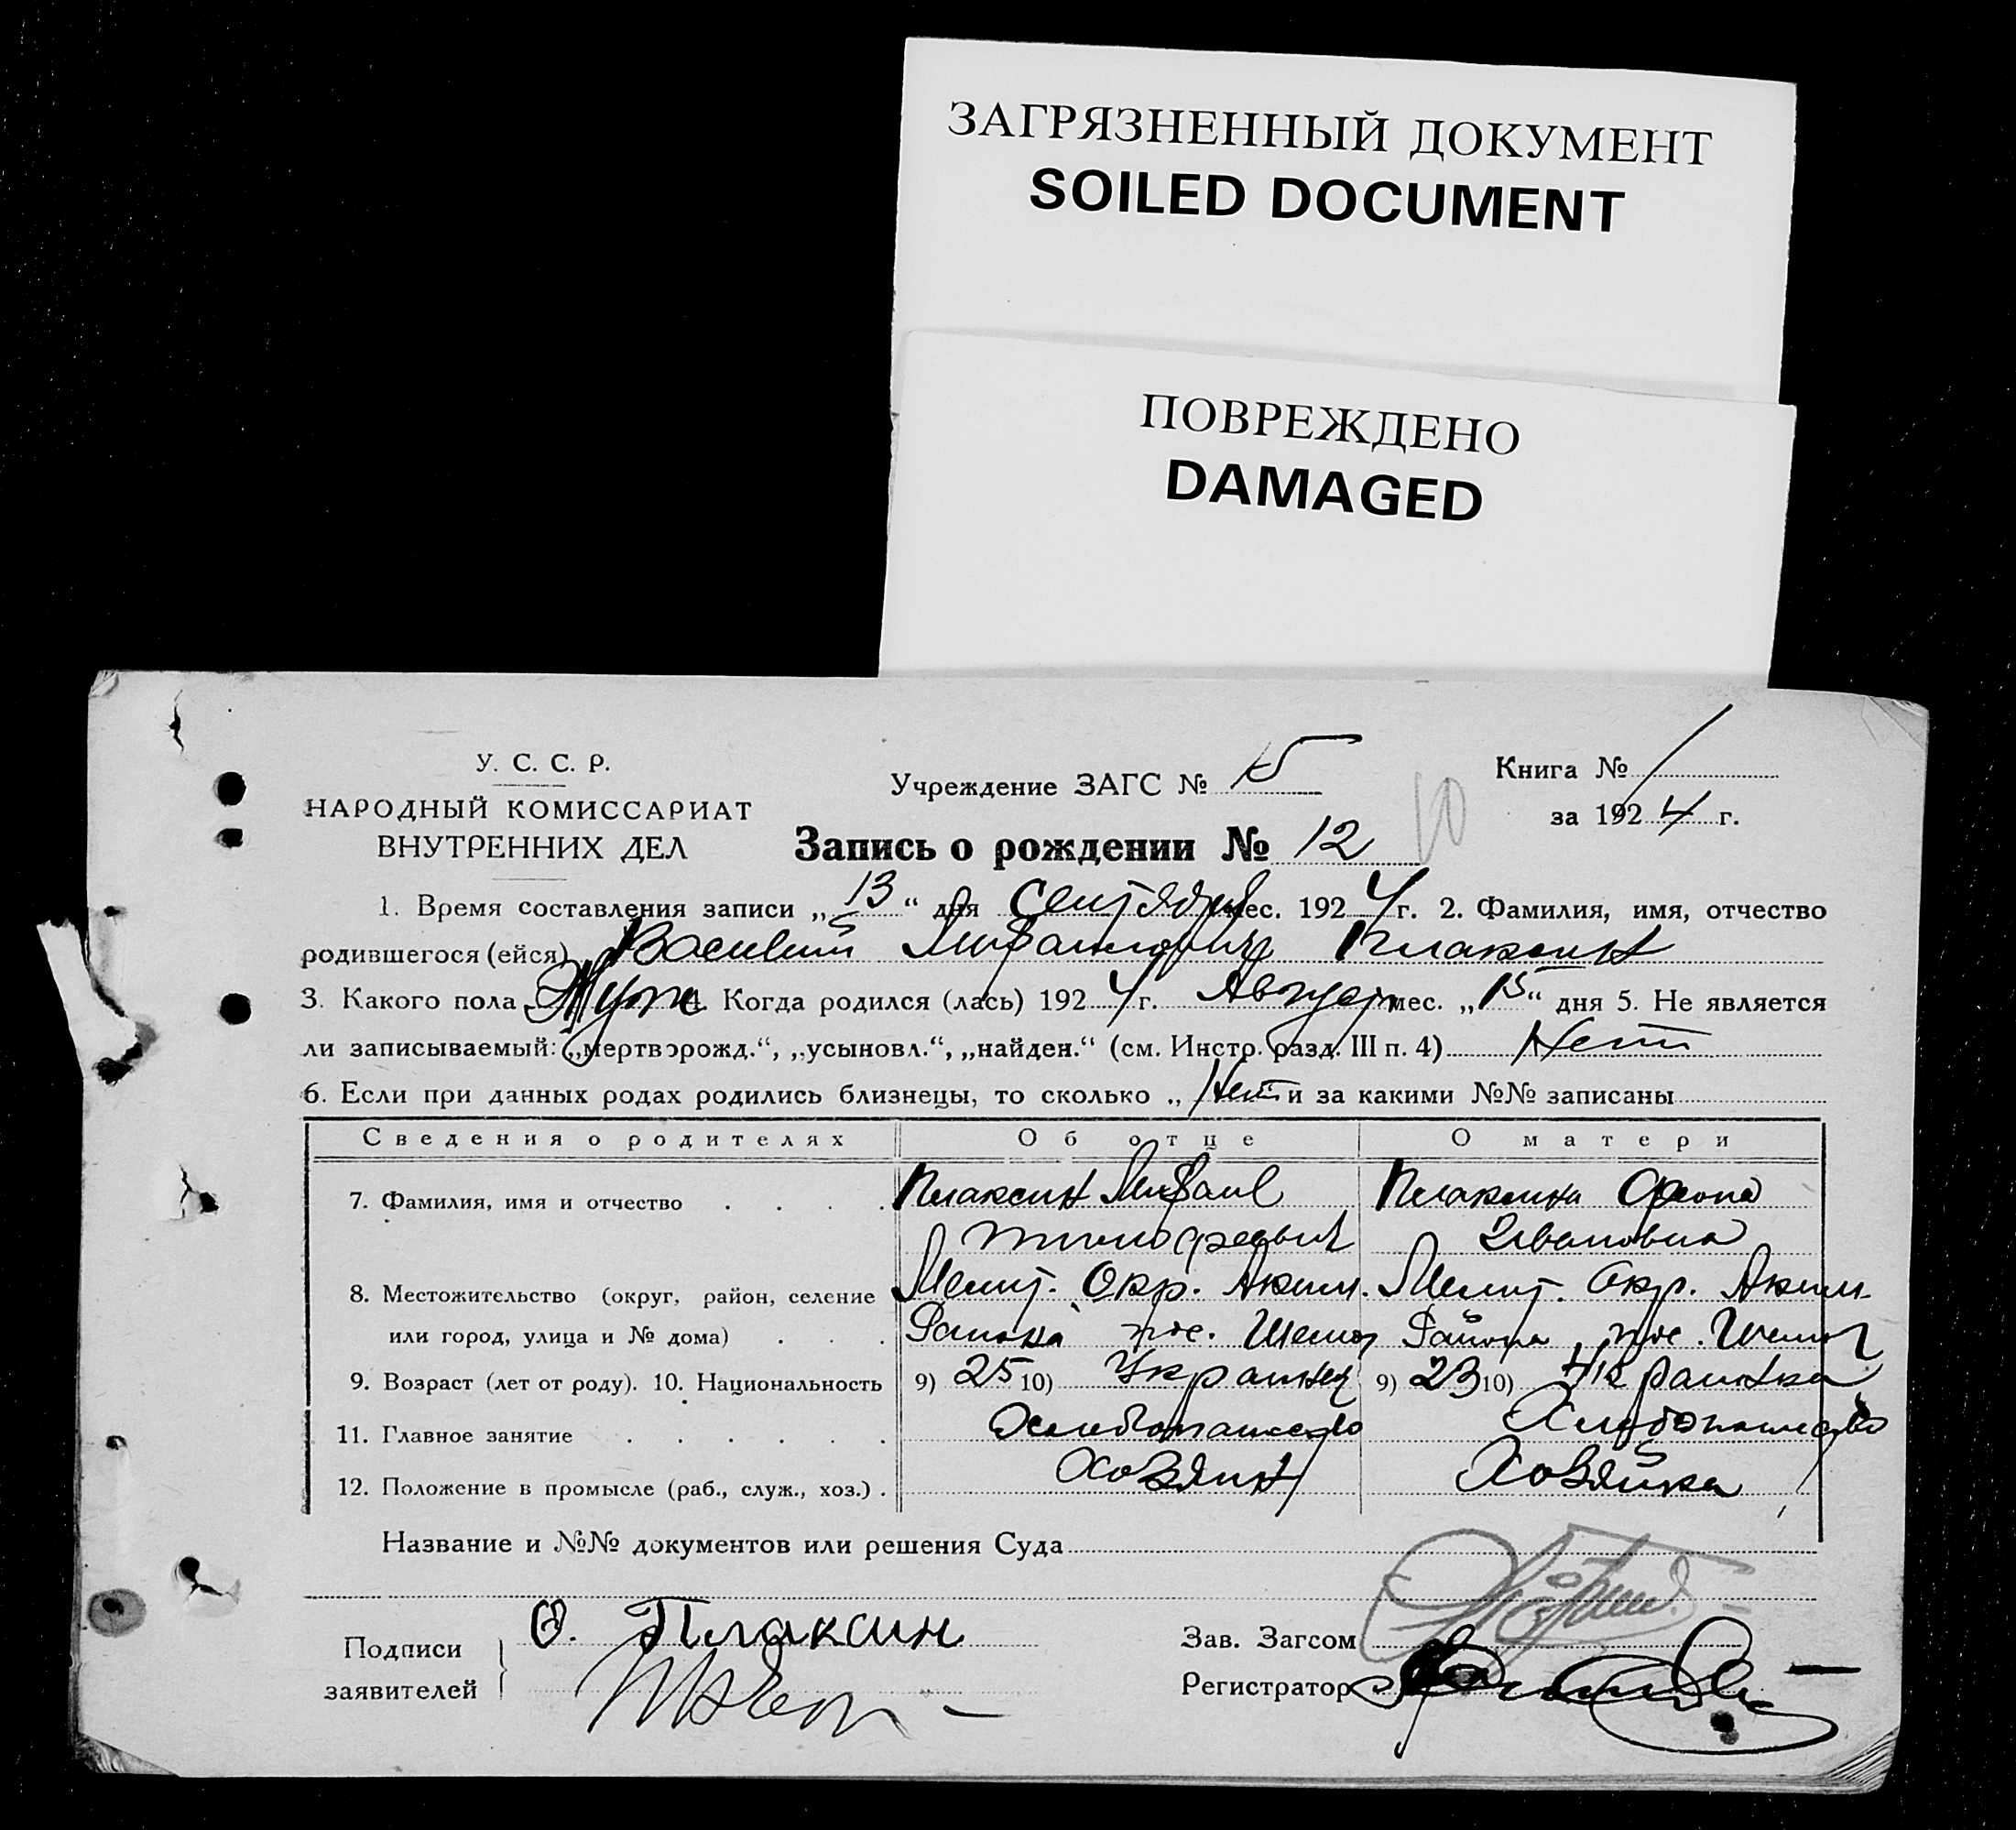 ЗАГРЯЗНЕННЫЙ ДОКУМЕНТ
SOILED DOCUMENT
ПОВРЕЖДЕНО
DAMAGED
У. С. С. Р.
НАРОДНЫЙ КОМИССАРИАТ
ВНУТРЕННИХ ДЕЛ
Учреждение ЗАГС № 5
Книга № 1
за 1924 г.
Запись о рождении № 12
10
1. Время составления записи „13“ дня Сентября мес. 1924 г. 2. Фамилия, имя, отчество
родившегося (ейся) Василий Михайлович Плаксин
3. Какого пола Муж 4. Когда родился (лась) 1924 г. Август мес. „15“ дня 5. Не является
ли записываемый: „мертворожд.“, „усыновл.“, „найден.“ (см. Инстр. разд. III п. 4) Нет
6. Если при данных родах родились близнецы, то сколько „Нет и за какими №№ записаны
Сведения о родителях Об отце О матери
7. Фамилия, имя и отчество Плаксин Михаил Плаксина
Тимофеевич Ивановна
8. Местожительство (округ, район, селение Мелит. Окр. Аким. Мелит. Окр. Аким.
или город, улица и № дома) Района пос. Района пос.
9. Возраст (лет от роду). 10. Национальность 9) 25 10) Украинец 9) 23 10) Украинка
11. Главное занятие Хлебопашество Хлебопашество
12. Положение в промысле (раб., служ., хоз.). Хозяин Хозяйка
Название и №№ документов или решения Суда
Подписи
заявителей
Плаксин
Зав. Загсом
Регистратор